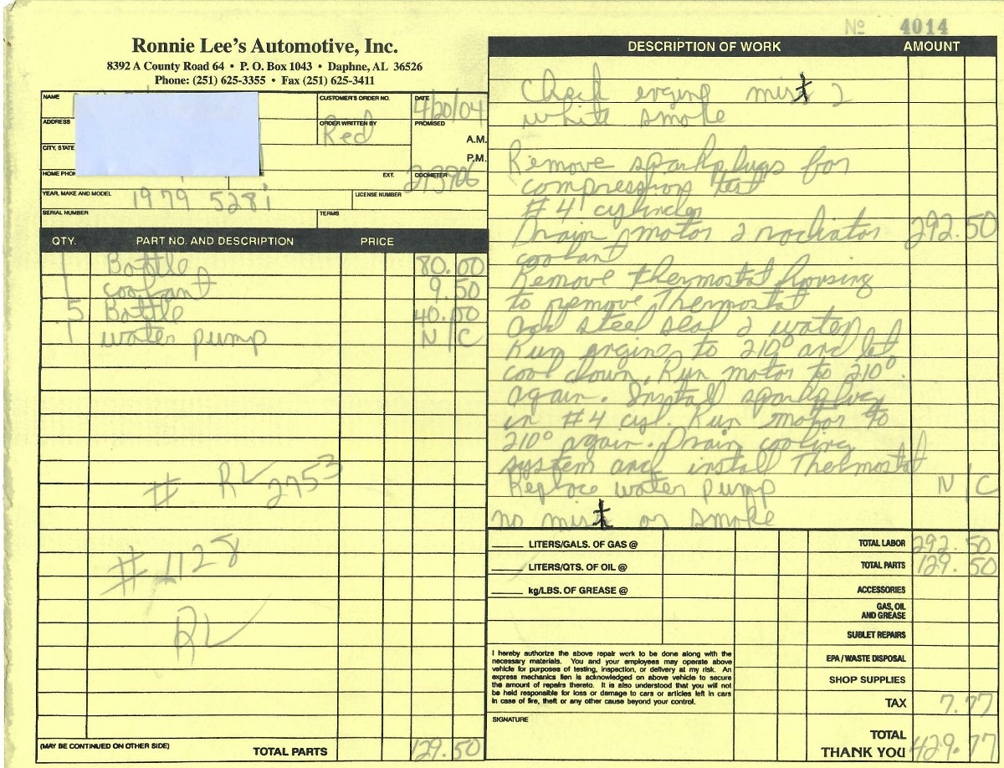 No 4014
Ronnie Lee's Automotive, Inc.
8392 A County Road 64 • P. O. Box 1043 • Daphne, AL 36526
Phone: (251) 625-3355 • Fax (251) 625-3411
NAME
CUSTOMER'S ORDER NO.
DATE 4/20/04
ADDRESS
ORDER WRITTEN BY Red
PROMISED
A.M.
P.M.
CITY, STATE
HOME PHO
EXT.
ODOMETER
YEAR, MAKE AND MODEL 1979 528i
LICENSE NUMBER
SERIAL NUMBER
TERMS
QTY. PART NO. AND DESCRIPTION PRICE
1 Bottle 80.00
1 coolant 9.50
5 Bottle 40.00
1 water pump N/C
# RL 2753
#1128
RL
(MAY BE CONTINUED ON OTHER SIDE) TOTAL PARTS 129.50
DESCRIPTION OF WORK AMOUNT
Check engine mist 2
white smoke
Remove sparkplugs for
compression test
#4 cylinder
Drain motor 2 radiator 292.50
coolant
Remove thermostat housing
to remove Thermostat
add steel seal 2 water
Run engine to 210° and let
cool down. Run motor to 210°
again. Install sparkplug
in #4 cyl. Run motor to
210° again. Drain cooling
system and install Thermostat
Replace water pump N/C
no mist or smoke
LITERS/GALS. OF GAS @
LITERS/QTS. OF OIL @
kg/LBS. OF GREASE @
TOTAL LABOR 292.50
TOTAL PARTS 129.50
ACCESSORIES
GAS, OIL
AND GREASE
SUBLET REPAIRS
EPA / WASTE DISPOSAL
SHOP SUPPLIES
TAX 7.77
TOTAL
THANK YOU 429.77
I hereby authorize the above repair work to be done along with the
necessary materials. You and your employees may operate above
vehicle for purposes of testing, inspection, or delivery at my risk. An
express mechanics lien is acknowledged on above vehicle to secure
the amount of repairs thereto. It is also understood that you will not
be held responsible for loss or damage to cars or articles left in cars
in case of fire, theft or any other cause beyond your control.
SIGNATURE